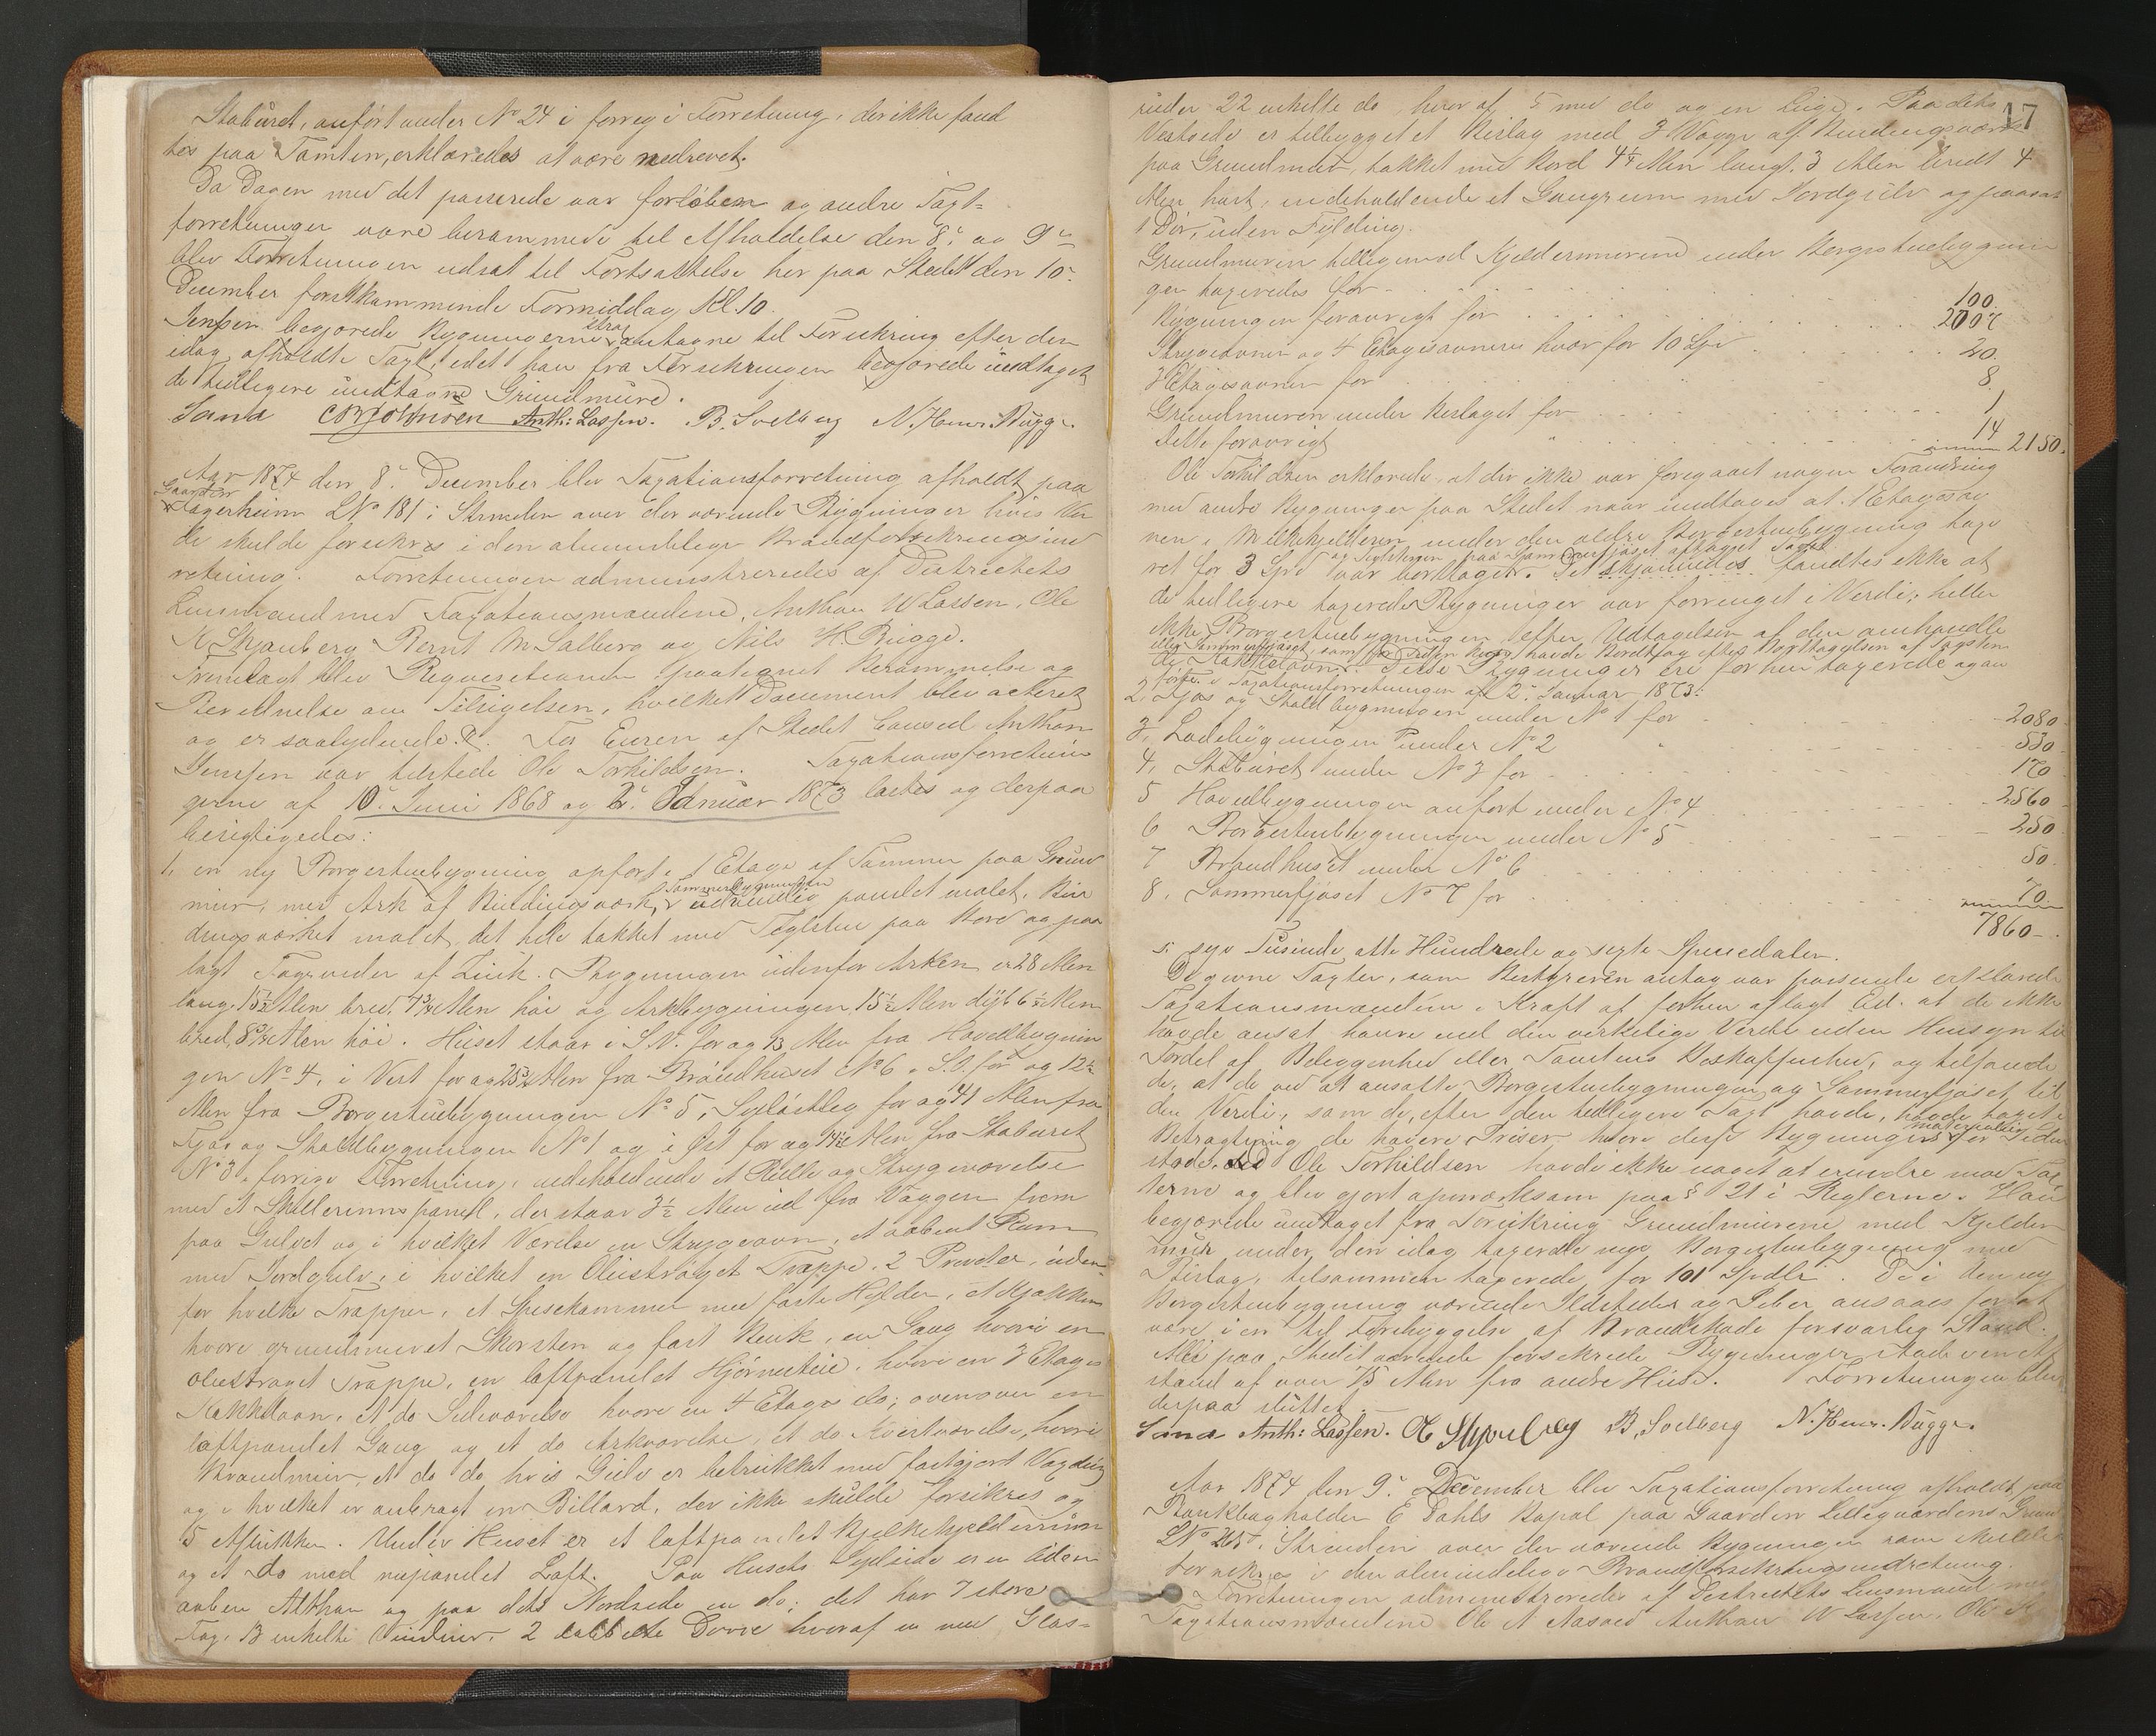 Stabùret, anført under No 24 i forrige Forretning, der ikke fand
tes paa Tomten, erklæredes at være nedrevet.
Da Dagen med det passerede var forløben og andre Taxt-
forretninger vare berammede til Afholdelse den 8de og 9de
blev Forretningen udsat til Fortsættelse her paa Stedet den 10de
December førstkommende Formiddag Kl. 10.
Jenssen begjærede Bygningerne strax antagne til Forsikring efter den
idag afholdte Taxt, idet han fra Forsikringen begjærede undtaget
de tidligere undtagne Grundmure.
Sand Anth: Lassen. B. Solberg N. Henr. Bügge.
Aar 1874 den 8de December blev Taxationsforretning afholdt paa
Gaarden
Fagerheim LNo 181 i Strinden over der værende Bygninger hvis Vær
de skulde forsikres i den almindelige Brandforsikringsind
retning. Forretningen administreredes af Districtets
Lensmand med Taxationsmændene, Anthon W Lassen, Ole
K Skjønberg Bernt M Salberg og Nils H. Bügge.
Fremlagt blev Reqvisitionen paategnet Berammelse og
Bevidnelse om Tilsigelsen, hvilket Document blev acteret
og er saalydende. For Eieren af Stedet Consul Anthon
Jenssen var tilstede Ole Torkildsen. Taxationsforretnin
gerne af 10de Juni 1868 og 2de Januar 1873 læstes og derpaa
berigtigedes:
1, en ny Borgestuebygning opført i 1 Etage af Tømmer paa Grund
mur, med Ark af Bindingsværk, Tømmerbygningen udvendig panelet malet, Bin
dingsværket malet, det hele takket med Taglsten paa Bord og paa
lagt Tagrender af Zink. Bygningen udenfor Arken er 28 Alen
lang, 15 1/2 Alen bred, 7 3/4 Alen høi og Arkbygningen 15 1/2 Alen dyb 6 1/2 Alen
bred, 8 Alen høi. Huset staar i S.V. for og 13 Alen fra Hovedbygnin
gen No 4, i Vest for og 25 3/4 Alen fra Brøndhuset No 6 i S.O. for og 12 1/2
Alen fra Borgestuebygningen No 5, Sydøstlig for og 41 Alen fra
Fjøs og Staldbygningen No 1 og i Øst for og 14 1/2 Alen fra Stabüret
No 3 i forrige Forretning, indeholdende et Rulle og Strygeværelse
med et Skillerumspanel, der staar 3 1/2 Alen ud fra Væggen frem
paa Gulvet og i hvilket Værelse en Strygeovn, et aabent Rum
med Jordgulv, i hvilket en Oliestrøget Trappe, 2 Priveter, uden
for hvilke Trapper, et Spisekammer med faste Hylder, et Kjøkken
hvori grundmuret Skorsten og fast Bænk, en Gang hvori en
oliestrøget Trappe, en loftpanelet Hjørnestue, hvori en 3 Etages
Kakkelovn, et do Sideværelse hvori en 4 Etage do; ovenover en
loftpanelet Gang og et do Arkværelse, et do Kvistværelse, hvori
Brandmur, et do do, hvis Gulv er betrukket med fastgjort Voxdug
og i hvilket er anbragt en Billard, der ikke skulde forsikres og
5 Aflukker. Under Huset er et loftpanelet Mjelkekjelderrum
og et do med rupanelet Loft. Paa Husets Sydside er en Uden
aaben Althan og paa dets Nordside en do; det har 7 store
Fag, 13 enkelte Vinduer, 2 dobbelte Dørre hvoraf en med Glas-
17
ruder 22 enkelte do, hvoraf 5 med do og en Luge. Paa dets
Vestside er tilbygget et Bislag med 3 Vægge af Bindingsværk
paa Grundmur, takket med Bord 4 1/2 Alen langt, 3 Alen bredt 4
Alen høit, indeholdende et Gangrum med Jordgulv og paasat
1 Dør, uden Fylding.
Grundmuren tilligemed Kjeldermurene under Borgestuebygnin
gen taxeredes for 100.
Bygningen forøvrigt for 2007
Strygeovnen og 4 Etagesovnene hver for 10 Spd 20.
3 Etagesovnen for 8.
Grundmuren under Bislaget for 1
dette forøvrigt 14 2150.
Ole Torkildsen erklærede, at der ikke var foregaaet nogen Forandring
med andre Bygninger paa Stedet naar undtages at 1 Etagesov
nen i Melkekjelderen under den ældre Borgestuebygning taxe
ret for 3 Spd og Taglstenen paa Sommerfjøset aftaget samt
var borttaget. Det skjønnedes fandtes ikke at
de tidligere taxerede Bygninger var forringet i Verdi; heller
ikke Borgestuebygningen efter Udtagelsen af den omhandle
eller Sommerfjøset, som før Tiden havde Bordtag efter Borttagelsen af Tagsten
de Kakkelovn. Disse Bygninger ere forhen taxerede og an
førte i Taxationsforretningen af 2de Januar 1873:
2, Fjøs og Staldbygningen under No 1 for 2080
3, Ladebygningen under No 2 530
4, Stabüret under No 3 for 170
5 Hovedbygningen anført under No 4 2560
6 Borgestuebygningen under No 5 250
7 Brøndhuset under No 6 50
8, Sommerfjøset No 7 for 70
7860
syv Tusinde otte Hundrede og sexti Speciedaler.
De givne Taxter, som Bestyreren antog var passende erklærede
Taxationsmændene i Kraft af forhen aflagt Ed, at de ikke
havde ansat høiere end den virkelige Verdi uden Hensyn til
Fordel af Beliggenhed eller Tomtens Beskaffenhed, og tilføiede
de, at de ved at ansætte Borgestuebygningen og Sommerfjøset til
den Verdi, som de, efter den tidligere Taxt havde, havde taget i
Betragtning de høiere Priser hvori disse Bygningers materialier for Tiden
stode. Ole Torkildsen havde ikke noget at erindre mod Tax
terne og blev gjort opmærksom paa § 21 i Reglerne. Han
begjærede undtaget fra Forsikring Grundmurene med Kjelder
mur under den idag taxerede nye Borgestuebygning med
Bislag, tilsammen taxerede for 101 Spdlr. De i den ny
Borgestuebygning værende Ildsteder og Piber ansaaes for at
være i en til Forebyggelse af Brandskade forsvarlig Stand.
Alle paa Stedet værende forsikrede Bygninger stode i en Af
stand af over 75 Alen fra andre Huse. Forretningen blev
derpaa sluttet.
Sand Anth: Lassen. O K Skjønberg B. Solberg N. Henr. Bugge.
Aar 1874 den 9de December blev Taxationsforretning afholdt paa
Bankbogholder E Dahls Bopæl paa Gaarden Lillegaardens Grund
LNo i Strinden over der værende Bygninger som skulde
forsikres i den almindelige Brandforsikringsindretning.
Forretningen administreredes af Districtets Lensmand med
Taxationsmændene Ole A Aasved Anthon W Lassen, Ole